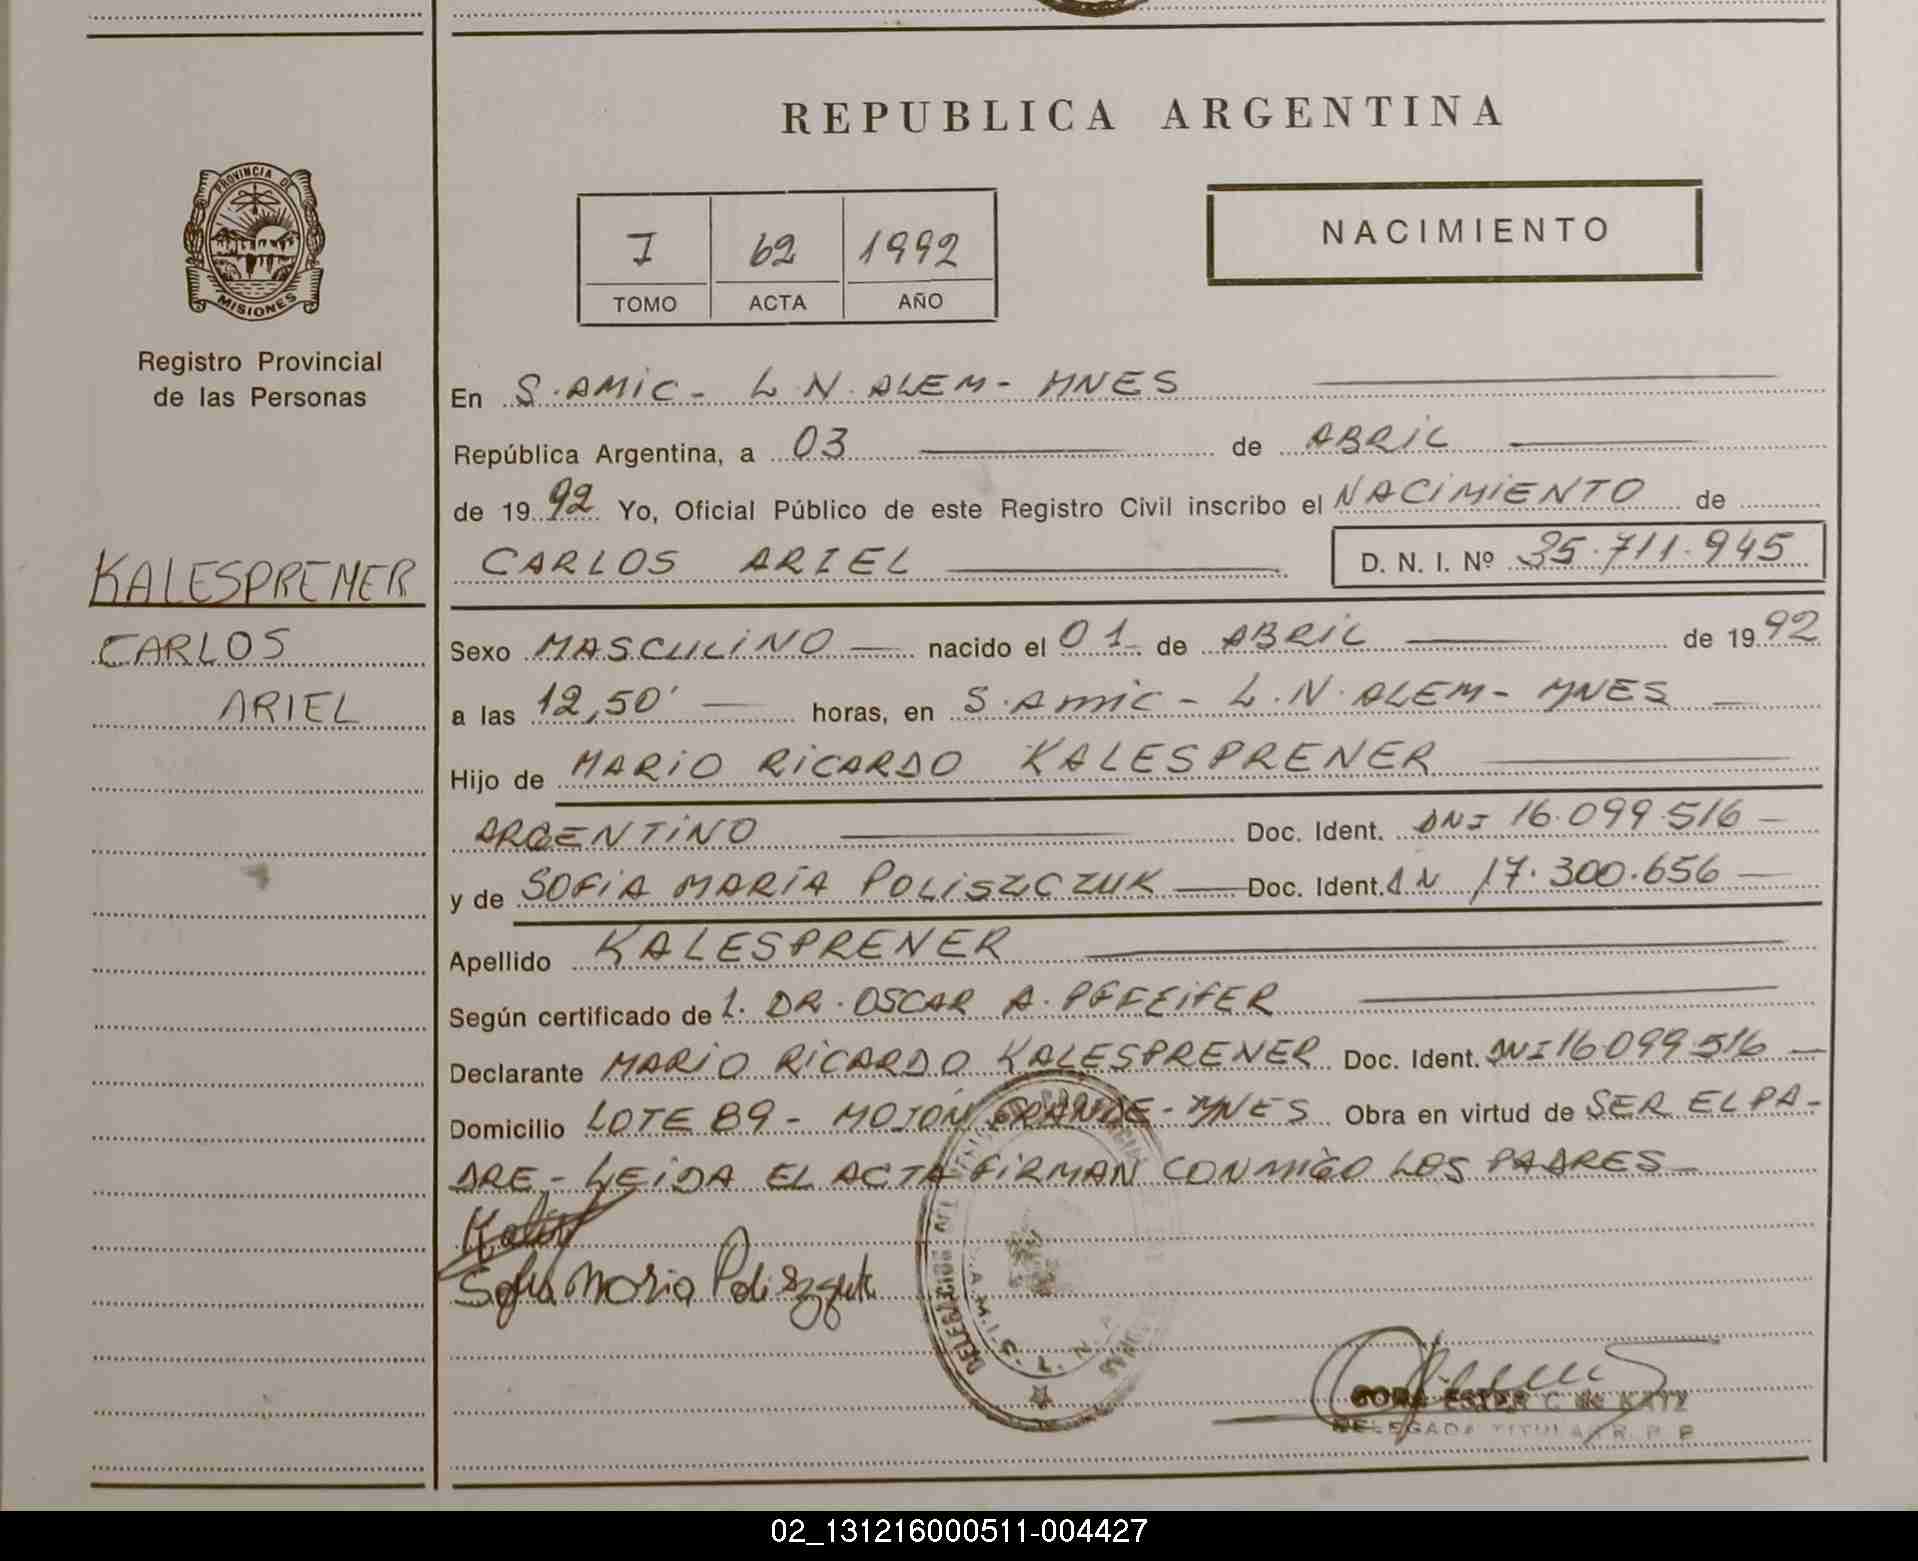 REPUBLICA ARGENTINA
PROVINCIA DE
MISIONES
Registro Provincial
de las Personas
KALESPRENER
CARLOS
ARIEL
I 62 1992
TOMO ACTA AÑO
NACIMIENTO
En S. AMIC - L. N. ALEM - MNES
República Argentina, a 03 de ABRIL
de 1992 Yo, Oficial Público de este Registro Civil inscribo el NACIMIENTO de
CARLOS ARIEL D. N. I. Nº 35.711.945
Sexo MASCULINO nacido el 01 de ABRIL de 1992
a las 12,50' horas, en S. AMIC - L. N. ALEM - MNES
Hijo de MARIO RICARDO KALESPRENER
ARGENTINO Doc. Ident. DNI 16.099.516
y de SOFIA MARIA POLISZCZUK Doc. Ident. DN 17.300.656
Apellido KALESPRENER
Según certificado de L. DR. OSCAR A. PFFEIFER
Declarante MARIO RICARDO KALESPRENER Doc. Ident. DNI 16.099.516
Domicilio LOTE 89 - MOJON GRANDE - MNES Obra en virtud de SER EL PA-
DRE - LEIDA EL ACTA FIRMAN CONMIGO LOS PADRES
Sofia Maria
ESTER C. de KATZ
DELEGADA TITULAR R. P. P.
02_131216000511-004427